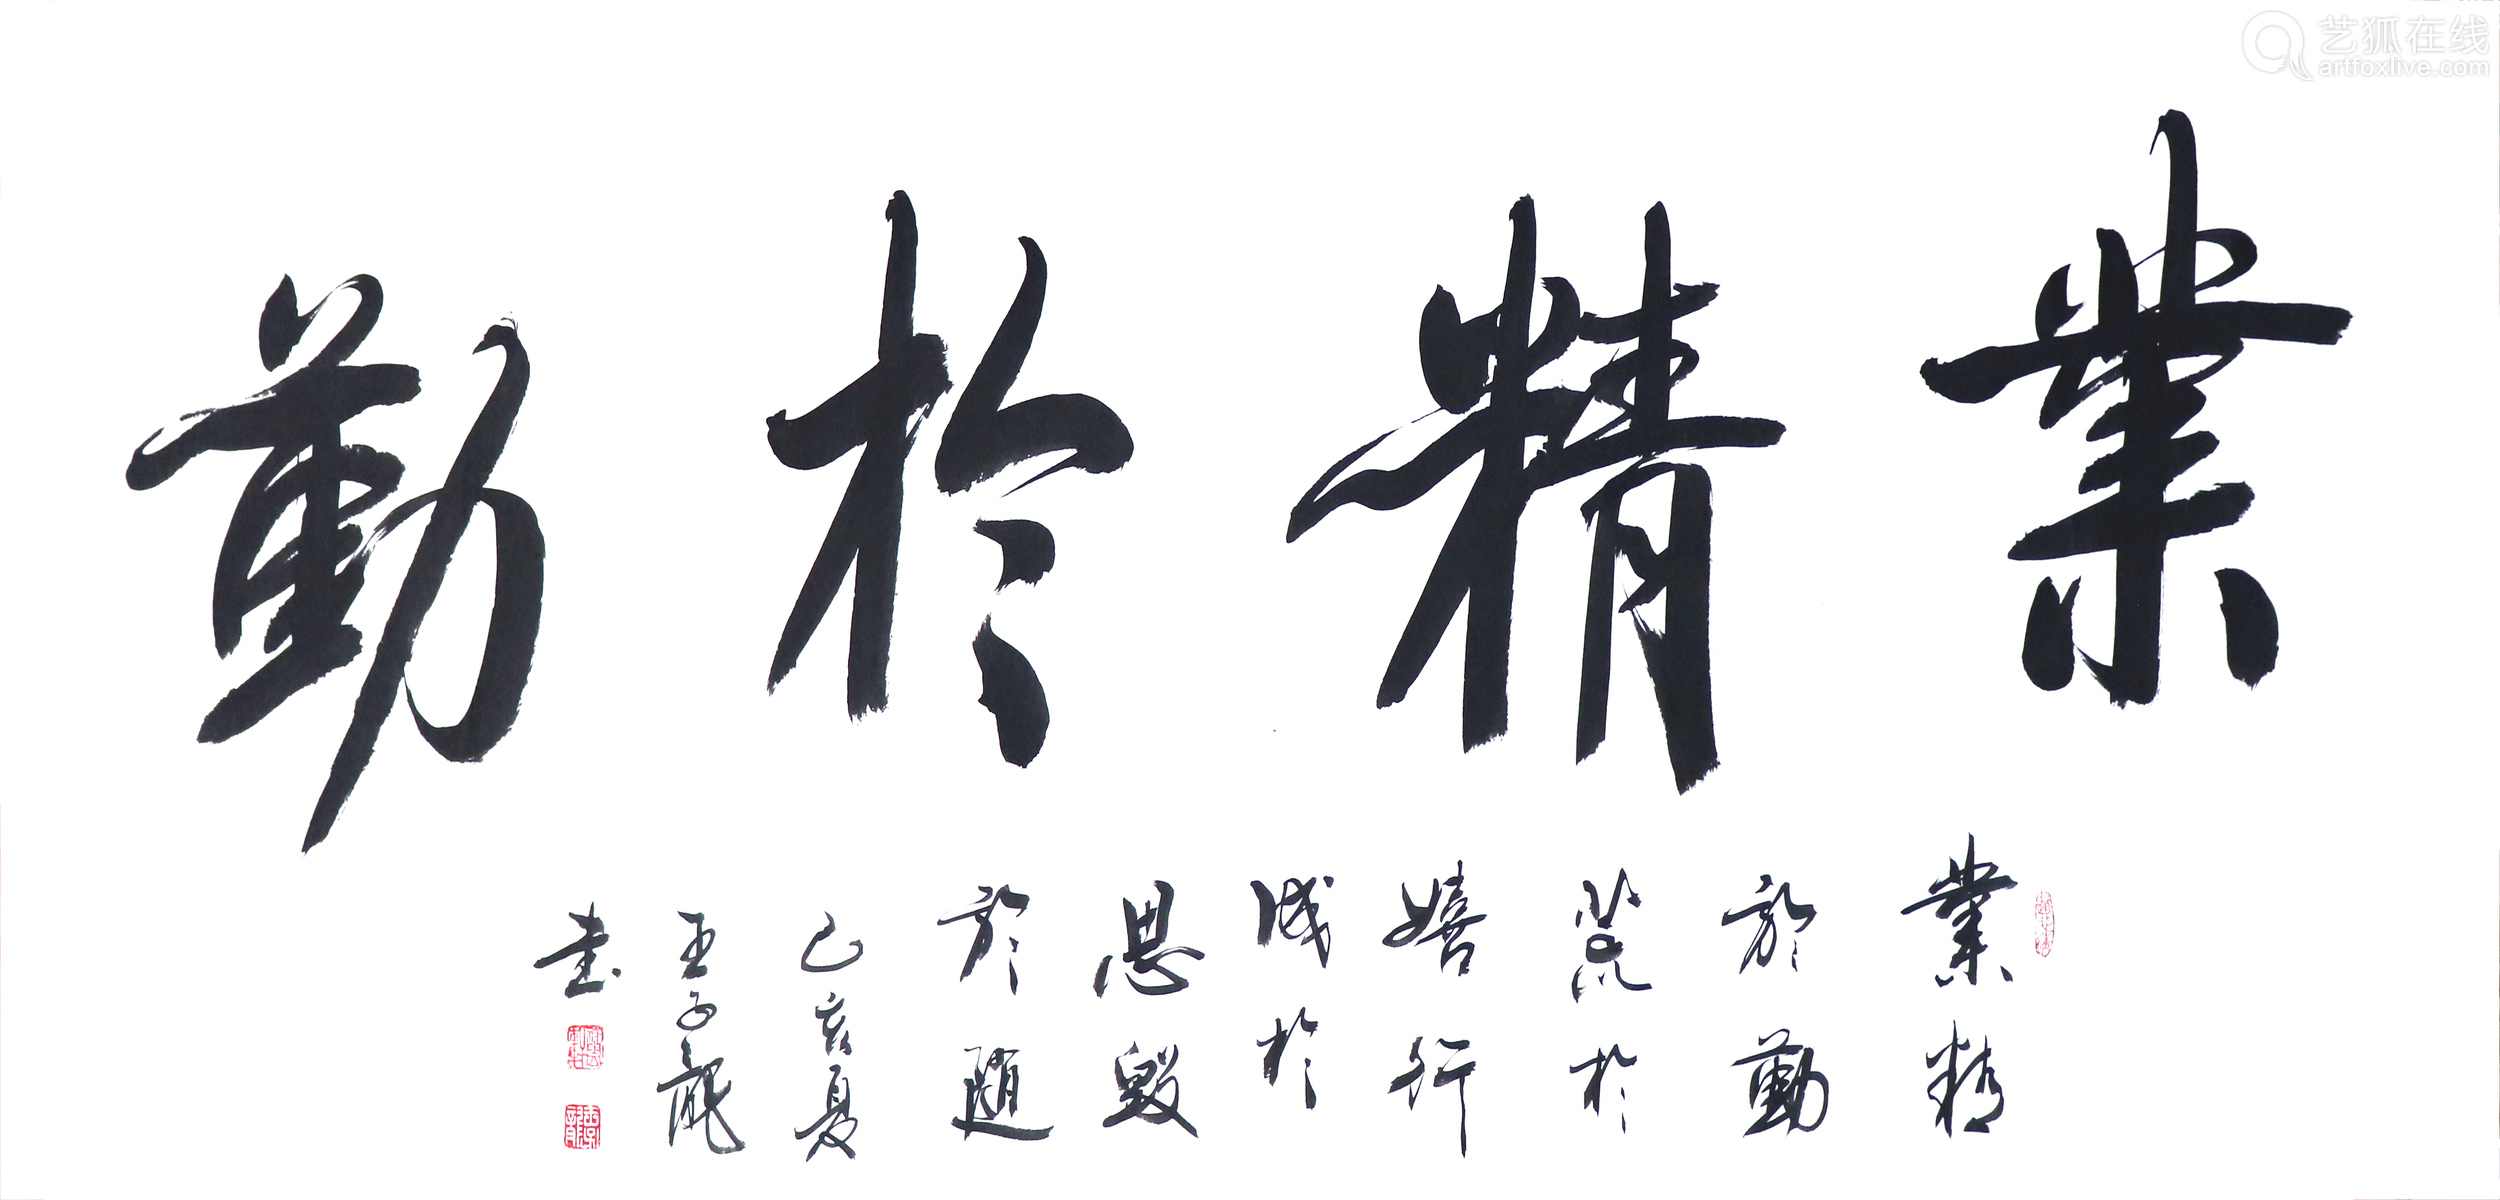 業精於勤
業精
於勤
荒於
嬉行
成於
思毁
於随
己亥夏
王子龍
书
艺狐在线
artfoxlive.com